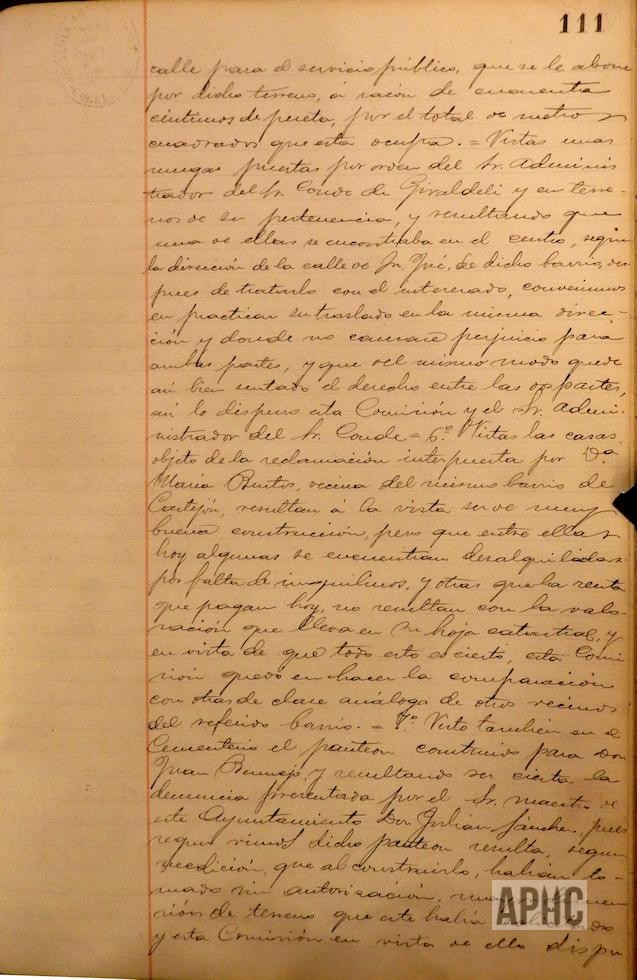 111
calle para el servicio público, que se le abone
por dicho terreno, a razón de cincuenta
céntimos de peseta, por el total de metros
cuadrados que esta ocupa. = Vistas unas
nuevas puertas por orden del Sr. Adminis
trador del Sr. Conde de Giraldeli y en terre-
nos de su pertenencia, y resultando que
una de ellas se encontraba en el centro, según
la dirección de la calle de Sn. José, de dicho barrio, des
pues de tratarlo con el interesado, convenimos
en practicar su traslado en la misma direc-
ción y donde no causare perjuicio para
ambas partes, y que del mismo modo quede
así bien sentado el derecho entre las dos partes,
así lo dispuso esta Comisión y el Sr. Admi-
nistrador del Sr. Conde = 6º. Vistas las casas
objeto de la reclamación interpuesta por Dª
María Bustos, vecina del mismo barrio de
Castejón, resultan á la vista ser de muy
buena construcción, pero que entre ellas
hoy algunas se encuentran desalquiladas
por falta de inquilinos, y otras que la renta
que pagan hoy, no resultan con la valo-
ración que lleva en su hoja catastral, y
en vista de que todo esto es cierto, esta Comi
sión quedó en hacer la comparación
con otras de clase análoga de otros vecinos
del referido barrio. = 7º. Visto también en el
Cementerio el panteon construido para Don
Juan Bermejo, y resultando ser cierta la
denuncia presentada por el Sr. maestro de
este Ayuntamiento Don Julián Sánchez, pues
segun vimos dicho panteon resulta, segun
medición, que al construirlo, habian to-
mado sin autorización,
sión de terreno que este había
y esta Comisión en vista de ello dispu
APHC